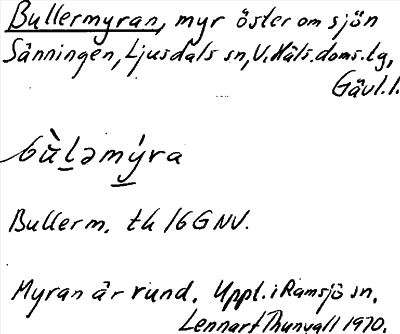 Bullermyran, myr öster om sjön
Sänningen, Ljusdals sn, V. Häls. doms.lg,
Gävl. l.
bùləmýra
Bullerm. tk 16G NV.
Myran är rund. Uppl. i Ramsjö sn.
Lennart Thunvall 1970.